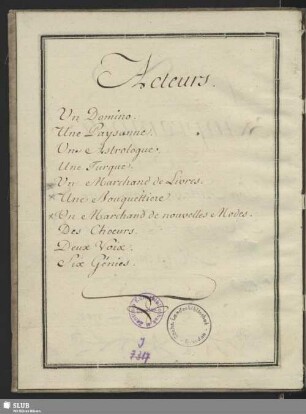 Acteurs.
Un Domino.
Une Paysanne.
Un Astrologue.
Une Turque.
Un Marchand de Livres.
Une Bouquettiere
Un Marchand de nouvelles Modes.
Des Choeurs.
Deux Voix.
Six Génies.
J
7387
SLUB
Wir führen Wissen.